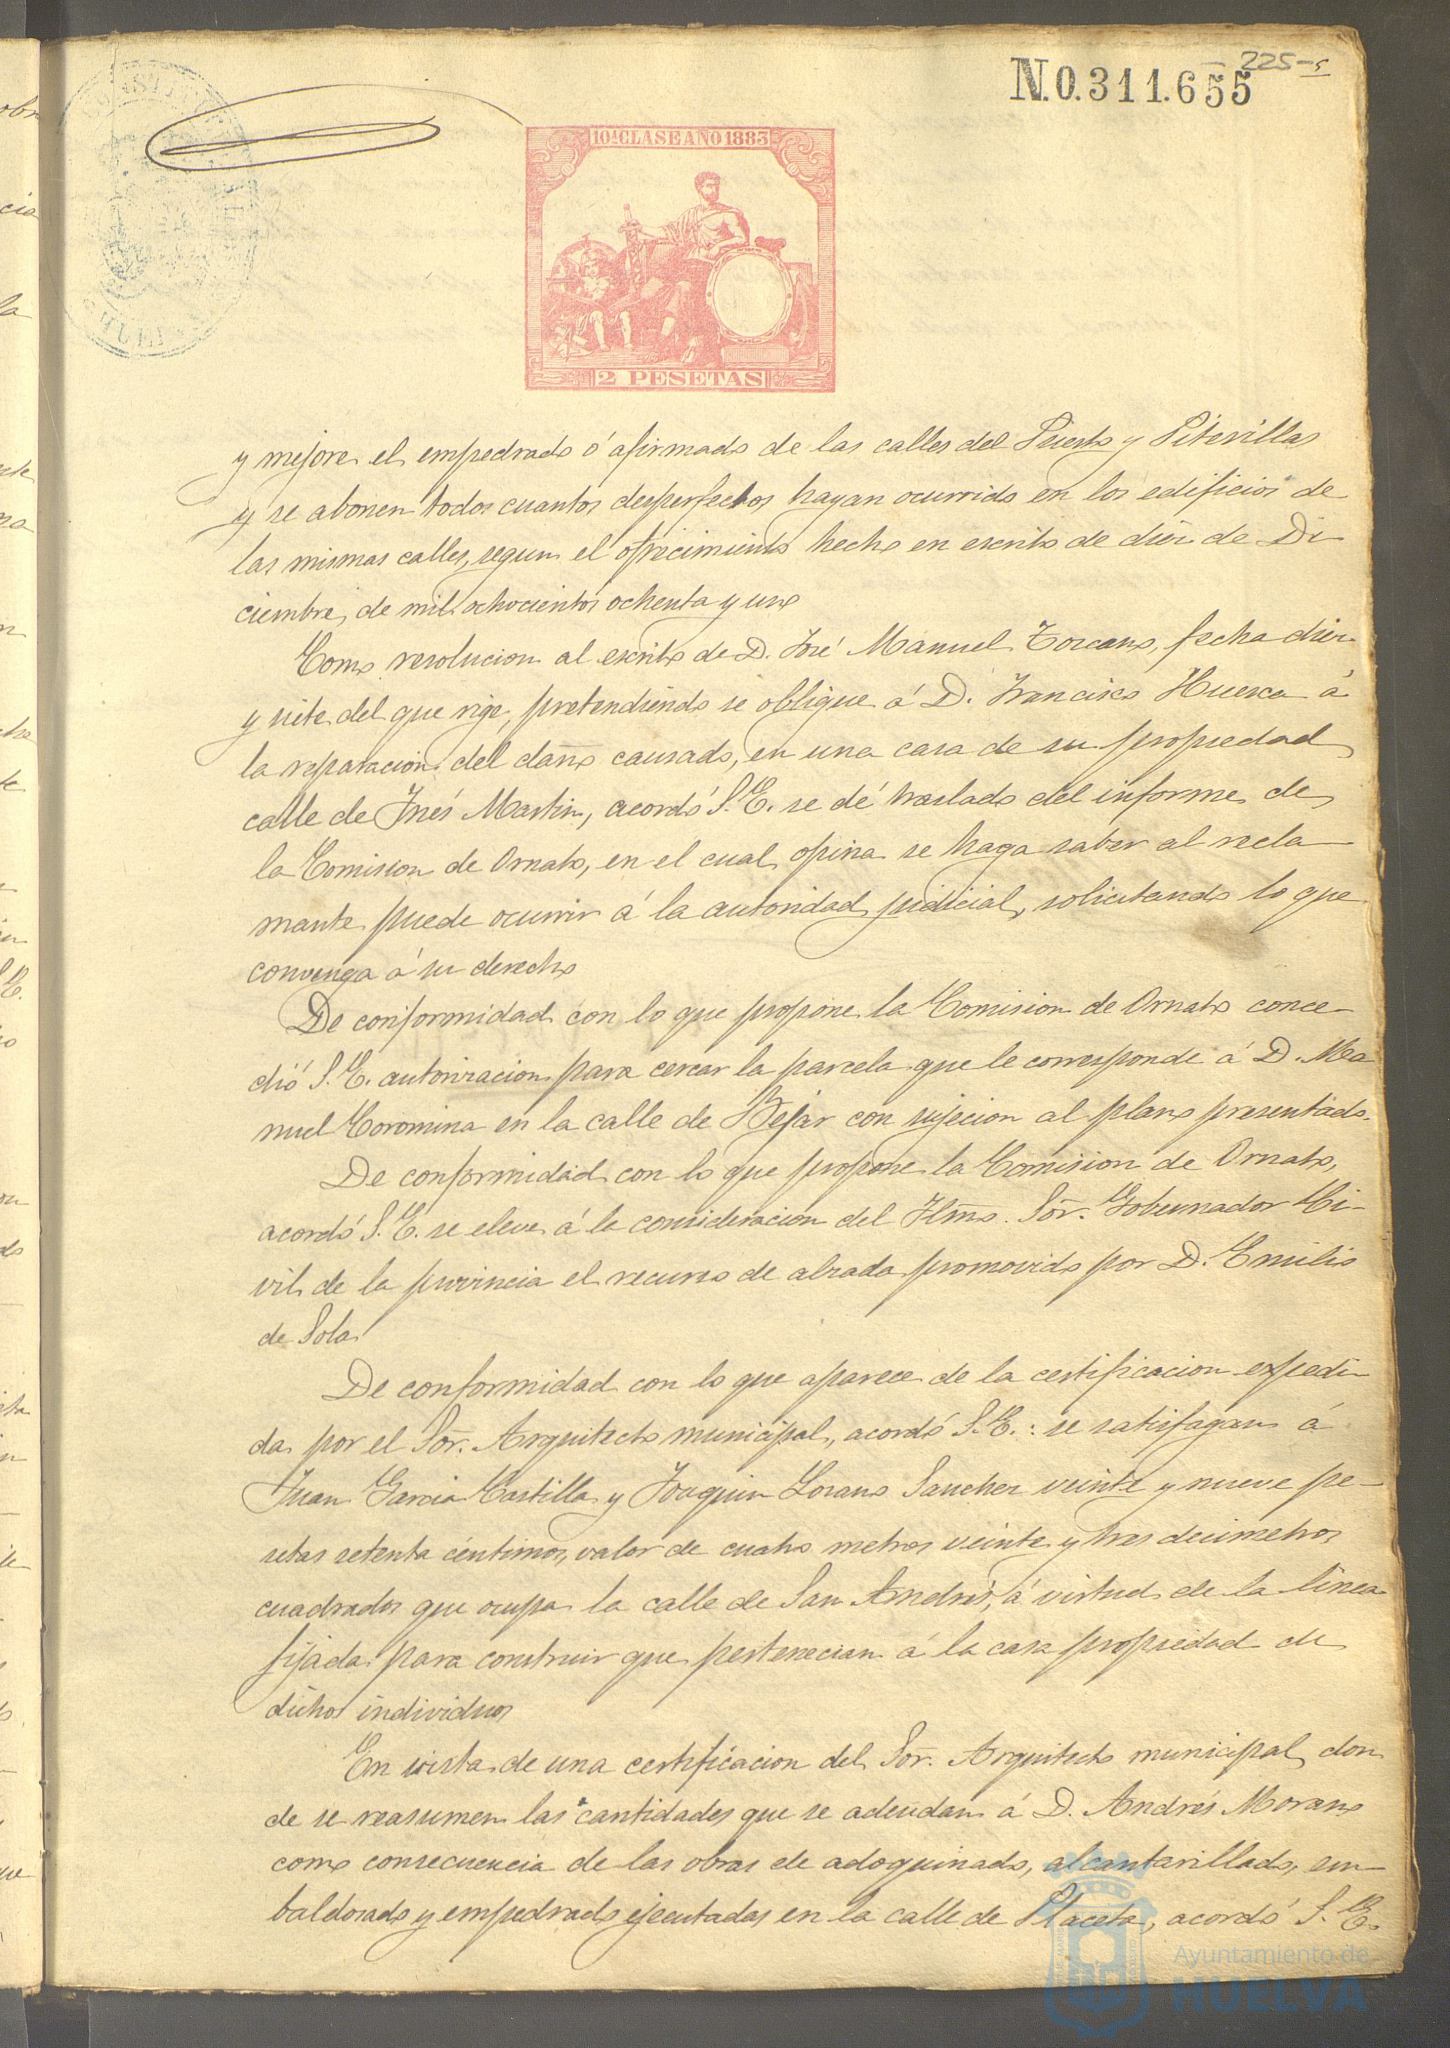 225-5
N.0.311.655
10ª CLASE AÑO 1883
2 PESETAS
y mejore el empedrado ó afirmado de las calles del Puerto y Piterillas
y se abonen todos cuantos desperfectos hayan ocurrido en los edificios de
las mismas calles, segun el ofrecimiento hecho en escrito de diez de Di
ciembre de mil ochocientos ochenta y uno
Como resolucion al escrito de D. José Manuel Toscano, fecha diez
y siete del que rige, pretendiendo se oblique á D. Francisco Huesca á
la reparacion del daño causado, en una casa de su propiedad
calle de Inés Martin, acordó S.E. se dé traslado del informe de
la Comision de Ornato, en el cual opina se haga saber al recla
mante puede ocurrir á la autoridad judicial, solicitando lo que
convenga á su derecho
De conformidad con lo que propone la Comision de Ornato conce-
dió S.E. autorizacion para cercar la parcela que le corresponde á D. Ma
nuel Coromina en la calle de Bejar con sujecion al plano presentado.
De conformidad con lo que propone la Comision de Ornato,
acordó S.E. se eleve á la consideracion del Ilmo. Sõr. Gobernador Ci-
vil de la provincia el recurso de alzada promovido por D. Emilio
de Sola
De conformidad con lo que aparece de la certificacion expedi-
da por el Sõr. Arquitecto municipal, acordó S.E.: se satisfagan á
Juan Garcia Castilla y Joaquin Lozano Sanchez veinte y nueve pe-
setas setenta céntimos, valor de cuatro metros veinte y tres decimetros
cuadrados que ocupa la calle de San Andrés, á virtud de la línea
fijada para construir que pertenecian á la casa propiedad de
dichos individuos
En vista de una certificacion del Sõr. Arquitecto municipal, don
de se reasumen las cantidades que se adeudan á D. Andrés Morano
como consecuencia de las obras de adoquinado, alcantarillado, em-
baldosado y empedrado ejecutadas en la calle de Placeta, acordó S.E.
Ayuntamiento de
HUELVA